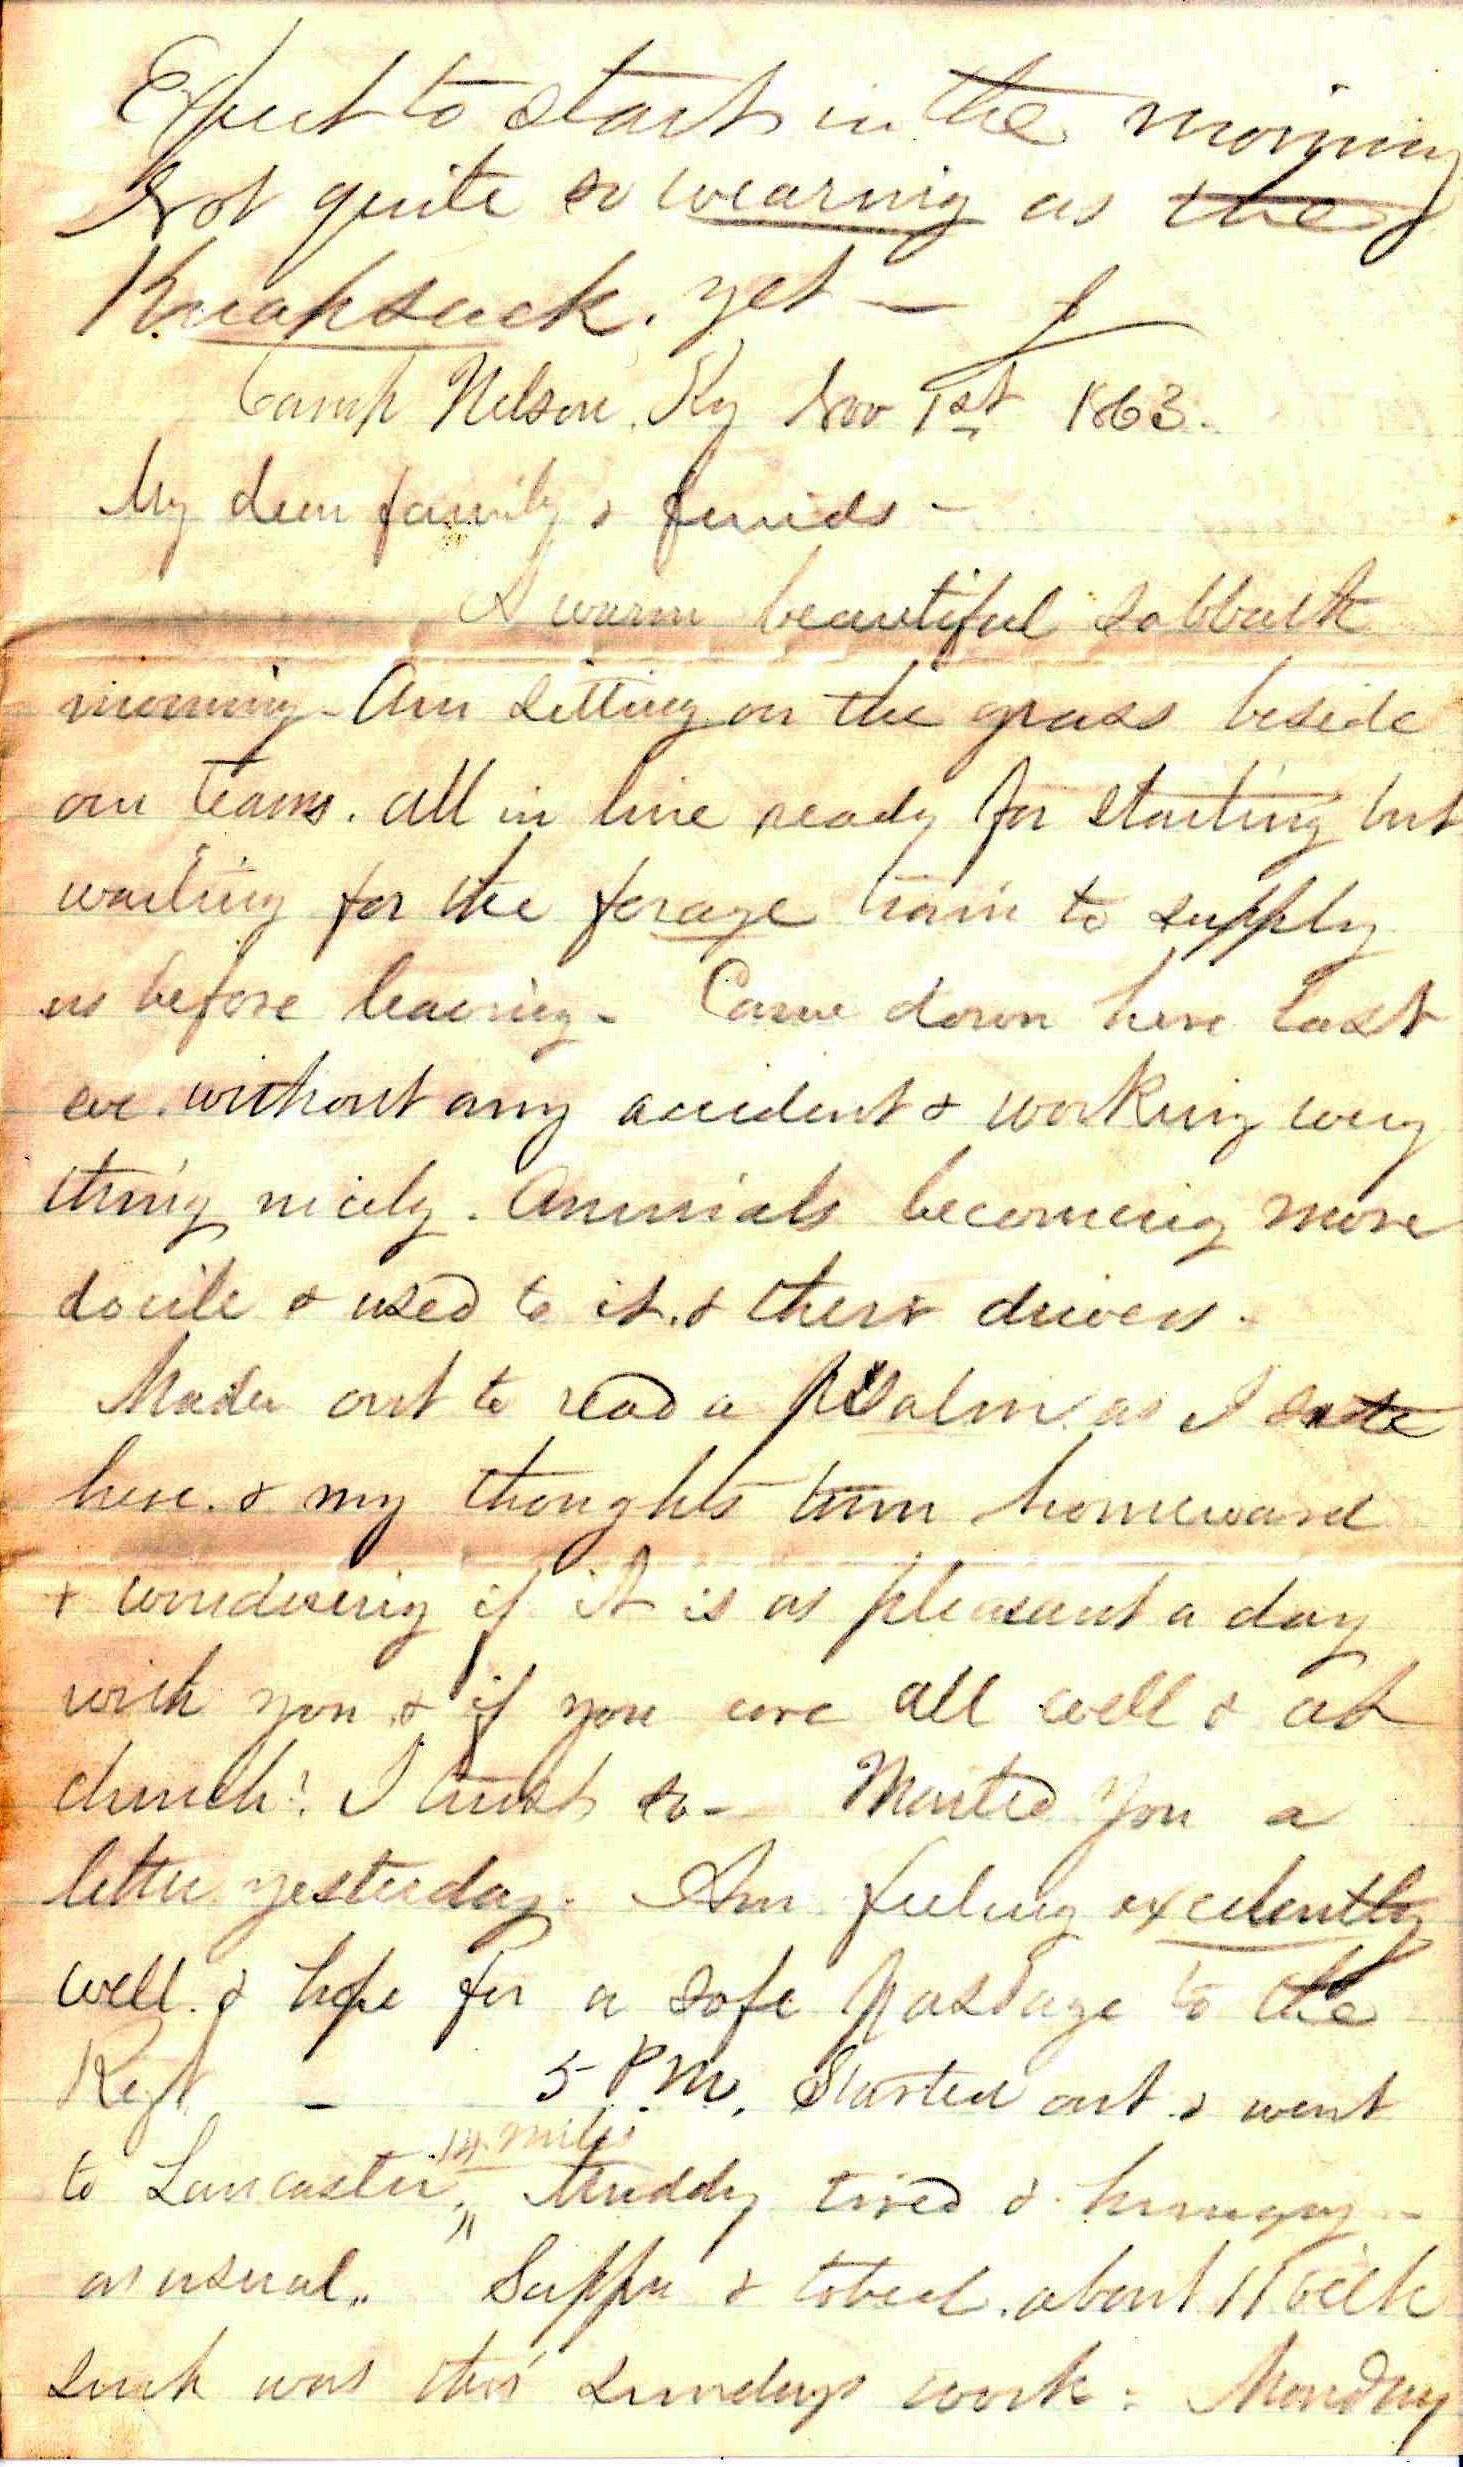 Expect to start in the morning
Not quite so wearing as the
Knapsack. yet —
Camp Nelson. Ky Nov 1st 1863.
My dear family & friends -
A warm beautiful sabbath
morning - Am sitting on the grass beside
our teams. all in line ready for starting but
waiting for the forage train to supply
us before leaving - Came down here last
eve. without any accident & working every
thing nicely. Animals becoming more
docile & used to it. & their drivers.
Made out to read a psalm as I sate
here. & my thoughts turn homeward
& wondering if it is as pleasant a day
with you & if you are all well & at
church. I trust so - Mailed you a
letter yesterday. Am feeling excelently
well. & hope for a safe passage to the
Regt - 5 PM. Started out & went
14 miles
to Lancaster, „ Muddy tired & hungry -
as usual„ Supper & tobed. about 11 oclk
such was this sundays work: Monday